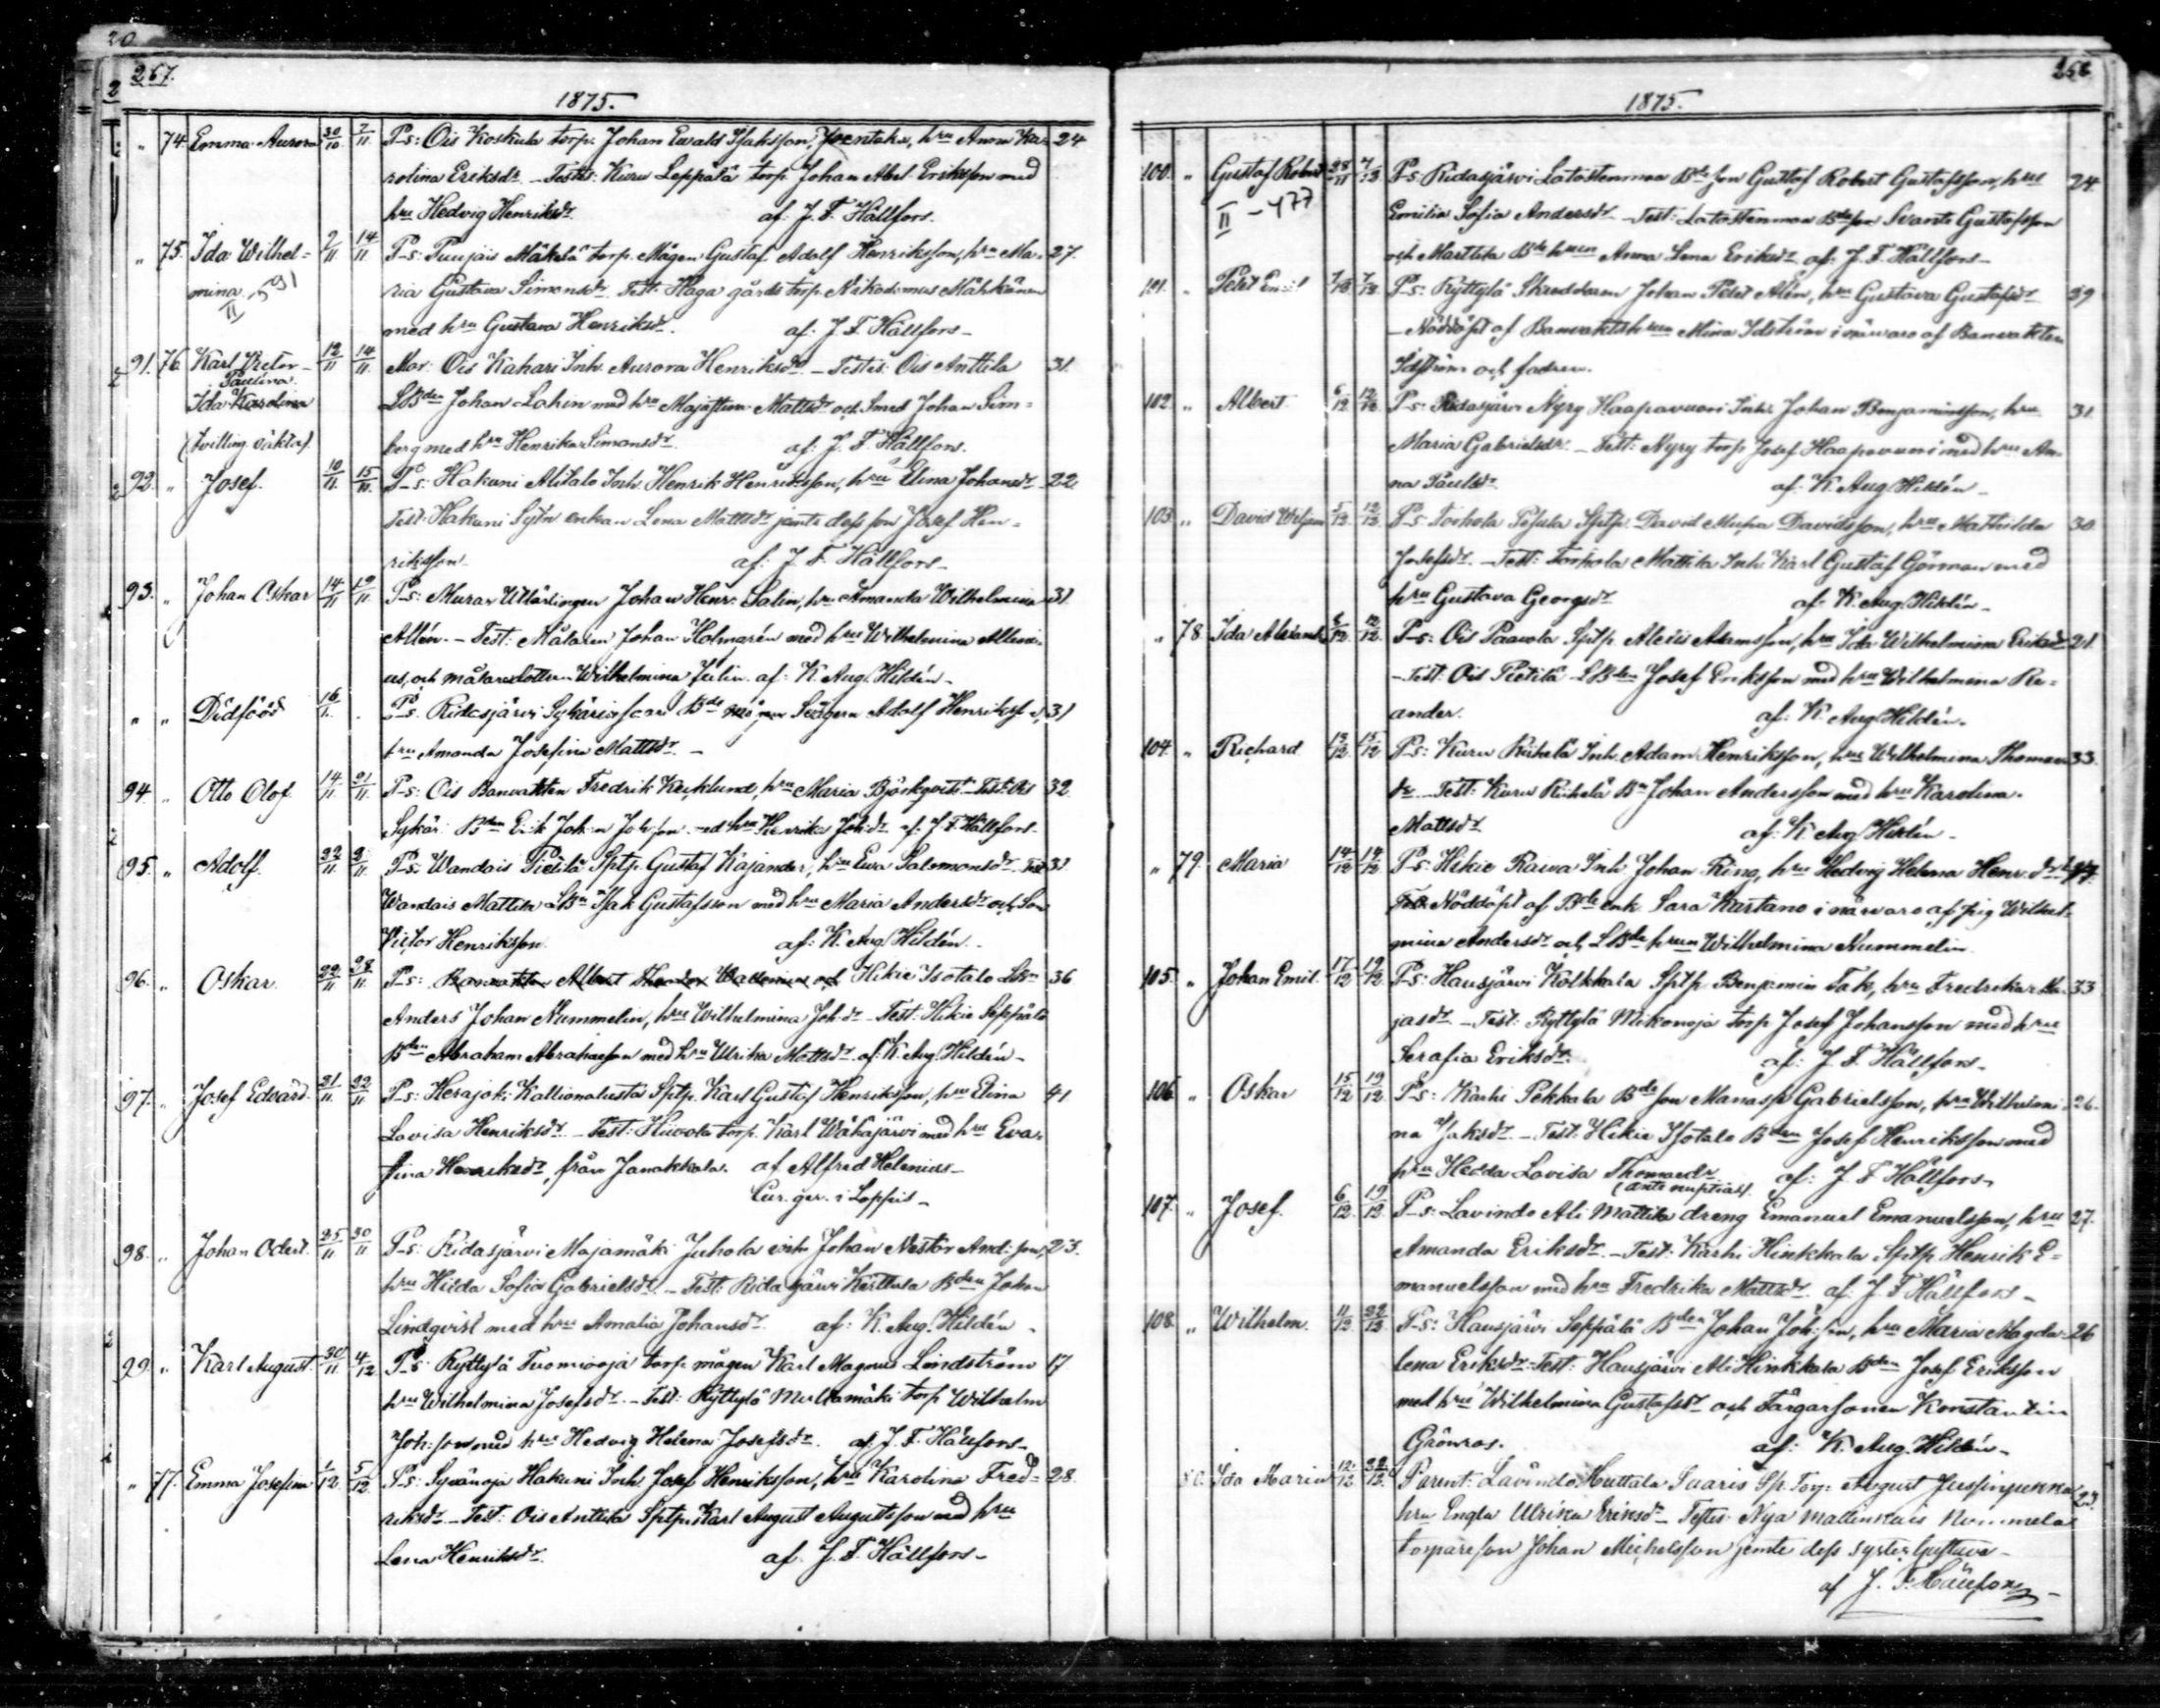 20
267.
1875.
74. Emma Aurora 30/10 7/11 P-s: Ois Koskula torp. Johan Ewald Isaksson, hru Anna Ka- 24
rolina Eriksdr. – Testis: Kuru Leppälä torp. Johan Abel Eriksson med
hru Hedvig Henriksdr. af: J. F. Hällfors.
75. Ida Wilhel- 9/11 14/11 P-s: Puujais Mäkelä torp. Mågen Gustaf Adolf Henriksson, hru Ma- 27.
mina ria Gustava Simonsdr. Test: Haga gårds torp. Nikodemus Mälkönen
II 531 med hru Gustava Henriksdr. af: J. F. Hällfors –
91. 76. Karl Victor – 12/11 14/11 Mor: Ois Kahari Inh. Aurora Henriksdr. – Testis: Ois Anttila 31.
Paulina
Ida Karolina LBden Johan Lahin med hru Maja Mattsdr och Smed Johan Sim-
(tvilling. oäkta). berg med hru Henrika Simonsdr. af: J. F. Hällfors.
92. " Josef. 10/11 15/11 P-s: Hakuni Alitalo Inh. Henrik Henriksson, hru Elina Johansdr. 22.
Test: Hakuni enkan Lena Mattsdr jemte dess son Josef Hen-
riksson. af: J. F. Hällfors –
93. " Johan Oskar 14/11 19/11 P-s: Johan Henr. Salin, hru Amanda Wilhelmina 31
Allén. – Test: Målaren Johan Holmgrén med hru Wilhelmina
och Wilhelmina Julin. af: K. Aug. Hildén –
" " Dödfödd 16/11 . P-s. Ridasjärvi Adolf Henriksson, 31
hru Amanda Josefina Mattsdr. –
94. " Otto Olof. 14/11 21/11 P-s: Ois Banvakten Fredrik hru Maria Björkqvist. Test: Ois 32.
Sykäri Bden Erik Johan med hru Henrika Joh:dr. af: J. F. Hällfors.
95. " Adolf. 22/11 P-s. Wandais Pietilä Sptp. Gustaf Kajander, hru Eva Salomonsdr. Test 31
Wandais Mattila LBn Isak Gustafsson med hru Maria Andersdr och Son
Victor Henriksson. af: K. Aug. Hildén. –
96. " Oskar. 22/11 28/11 P-s: Banvakten Albert och Hikie Isotalo LBn 36
Anders Johan Nummelin, hru Wilhelmina Joh.dr – Test: Hikie Seppälä
Bden Abraham Abrahamsson med hru Ulrika Mattsdr. af: K. Aug. Hildén –
97. " Josef Edvard. 21/11 22/11 P-s: Herajoki Kallionalusta Sptp. Karl Gustaf Henriksson, hru Elina 41.
Lovisa Henriksdr. – Test: torp. Karl Wähäjärvi med hru Eva
Stina Henriksdr, från Janakkala. af Alfred Helenius –
Cur. ger. i Loppis –
98. " Johan Odert. 25/11 30/11 P-s: Ridasjärvi Majamäki Juhola inh. Johan Nestor And:son, 23.
hru Hilda Sofia Gabrielsdr. – Test: Ridasjärvi Kurttula Bden Johan
Lindqvist med hru Amalia Johansdr. af: K. Aug. Hildén –
99. " Karl August. 30/11 4/12 P-s: Ryttylä Tuomioja torp. mågen Karl Magnus Lindström 17
hru Wilhelmina Josefsdr. – Test: Ryttylä Multamäki torp Wilhelm
Joh:son med hru Hedvig Helena Josefsdr. af: J. F. Hällfors –
" 77. Emma Josefina 1/12 5/12 P-s: Syvänoja Hakuni Inh. Josef Henriksson, hru Karolina Fred- 28.
riksdr. – Test: Ois Anttila Sptp. Karl August Augustsson med hru
Lena Henriksdr. af. J. F. Hällfors –
1875.
100. " Gustaf Robert 28/11 P-s: Ridasjärvi Latostenmaa Bde son Gustaf Robert Gustafsson, hru 24
II – 477 Emilia Sofia Andersdr. – Test: Latostenmaa Bdeson Svante Gustafsson
och Marttila Bde hrun Anna Lena Eriksdr. af: J. F. Hällfors –
101. " Peter Emil 7/12 P-s: Ryttylä Skräddaren Johan Peter Alén, hru Gustava Gustafsdr. 39
– Nöddöpt af Banvaktshrun Mina Idström i närwaro af Banvakten
Idström och fadren.
102. " Albert. 6/12 12/12 P-s: Ridasjärvi Nyry Haapavuori Inh. Johan Benjaminsson, hru 31.
Maria Gabrielsdr. – Test: Nyry torp. Josef Haapavuori med hru An-
na Paulsdr. af: K. Aug. Hildén –
103. " David Wiljam 5/12 12/12 P-s: Torhola Sptp. David Davidsson, hru Mathilda 30.
Josefsdr. – Test: Torhola Mattila Inh. Karl Gustaf Görman med
hru Gustava Georgsdr. af: K. Aug. Hildén –
" 78. Ida Alexand. 12/12 P-s: Ois Paavola Sptp. Alexis Adamsson, hru Ida Wilhelmina Eriksdr. 21.
– Test: Ois Pietilä LBden Josef Eriksson med hru Wilhelmina Re-
ander. af: K. Aug. Hildén.
104. " Richard 13/12 15/12 P-s: Kuru Riihelä Inh. Adam Henriksson, hru Wilhelmina Thomas 33.
dr. – Test: Kuru Riihelä Bn Johan Andersson med hru Karolina
Mattsdr. af: K. Aug. Hildén –
" 79. Maria 14/12 14/12 P-s: Hikie Raiva Inh. Johan Ring, hru Hedvig Helena Henr.dr.
Nöddöpt af Bde enk. Sara Kartano i närvaro af pig. Wilhel-
mina Andersdr. och LBde hrun Wilhelmina Nummelin
105. " Johan Emil. 17/12 19/12 P-s: Hausjärvi Kolkkala Sptp. Benjamin Tak, hru Fredrika Ma- 33
jasdr. – Test: Ryttylä Mikonoja torp. Josef Johansson med hru
Serafia Eriksdr. af: J. F. Hällfors –
106. " Oskar 15/12 19/12 P-s: Karhi Pekkala Bde son Manasse Gabrielsson, hru Wilhelmi- 26.
na Isaksdr. – Test: Hikie Isotalo Bden Josef Henriksson med
hru Hedda Lovisa Thomasdr. af: J. F. Hällfors –
(ante nuptias).
107. " Josef. 6/12 19/12 P-s: Lavindo Ali Mattila dreng Emanuel Emanuelsson, hru 27.
Amanda Eriksdr. – Test: Karhi Hinkkala Sptp. Henrik E-
manuelsson med hru Fredrika Mattsdr. af: J. F. Hällfors –
108. " Wilhelm. 11/12 22/12 P-s: Hausjärvi Seppälä Bden Johan Joh:son, hru Maria Magda- 26
lena Eriksdr. Test: Hausjärvi Ali Hinkkala Bden Josef Eriksson
med hru Wilhelmina Gustafsdr och Färgarsonen Konstantin
Grönroos. af: K. Aug. Hildén –
80. Ida Maria 12/12 22/12 Parent: Lavindo Huttala Saaris Sp. Torp: August Jussinpenna 23.
hru Engla Ulrika Eriksdr – Testes: Nya Mallinkais Nummela
torpareson Johan Michelsson jemte dess syster Gustava –
af J. F. Hällfors –